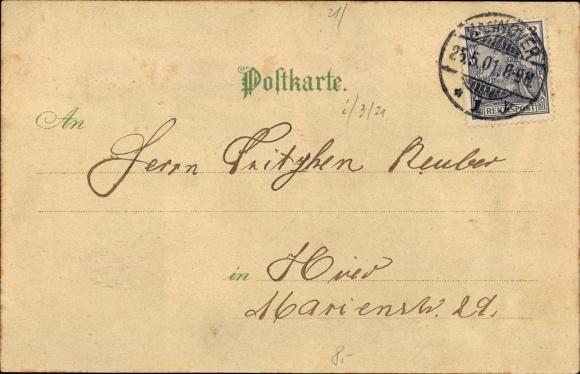 21/
HANNOVER
25.5.01.6-9N
REICHSPOST
Postkarte.
i/3/21
An
Herrn Fritzhen Reuber
in Hier
Marienstr. 2d.
8,-